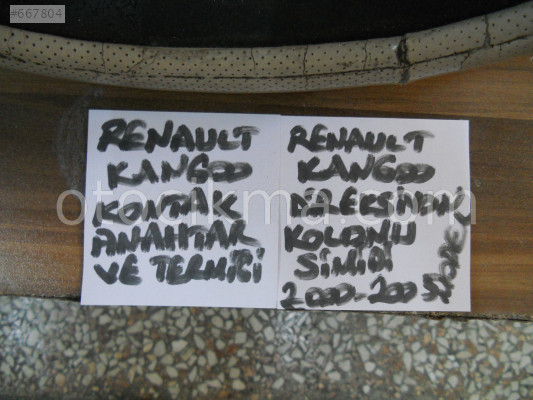 #667804
RENAULT
KANGOO
KONTAK
ANAHTAR
VE TERMİĞİ
RENAULT
KANGOO
DİREKSİYON
KOLONU
SİMİDİ
2000-2005
MODEL
otocikma.com